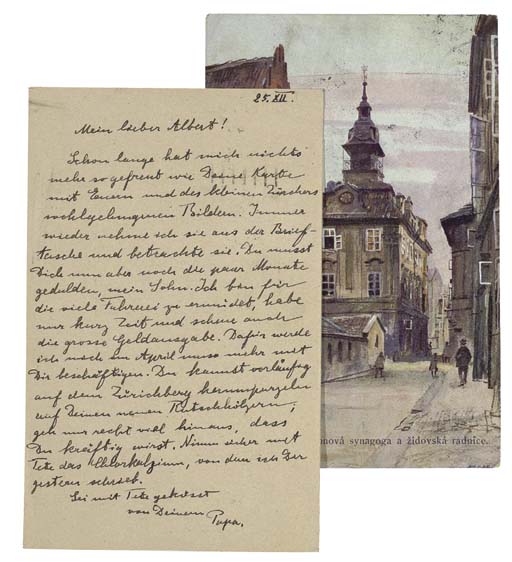 25. XII.
Mein lieber Albert!
Schon lange hat mich nichts
mehr so gefreut wie Deine Karte
mit Euern und des kleinen Zürchers
wohlgelungenen Bildern. Immer
wieder nehme ich sie aus der Brief-
tasche und betrachte sie. Du musst
Dich nun aber noch die paar Monate
gedulden, mein Sohn. Ich bin für
die viele Fahrerei zu ermüdet, habe
nur kurz Zeit und scheue auch
die grosse Geldausgabe. Dafür werde
ich mich im April umso mehr mit
Dir beschäftigen. Du kannst vorläufig
auf dem Zürichberg herumpurzeln
auf Deinen neuen Rutschhölzern;
geh nur recht viel hinaus, dass
Du kräftig wirst. Nimm sicher mit
Tete das Chlorkalzium, von dem ich Dir
gestern schrieb.
Sei mit Tete geküsst
von Deinem
Papa.
onová synagoga a židovská radnice.